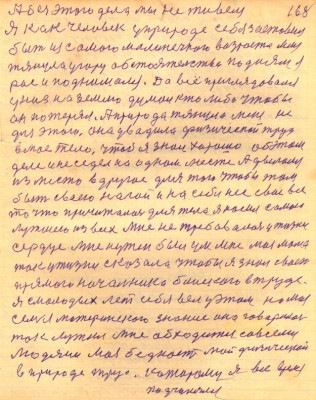 А без этого дела мы не живем 168
Я как человек у природе себя заставил
быть из самого маленького возраста меня
тянула у гору обстоятельство поднимал
рас и поднимал. Да всё приглядовался
униз на землю думал кто либо чтобы
он потерял. А природа тянула меня не
для этого, она увадила физический труд
в мое тело, чтоб я знал хорошо об этом
деле и не сидел на одном месте А двигался
из место в другое для того чтобы там
быть своею ногой и на себе нес свае все
то что причиталось для тела я носил самого
лутшего из всех мне не требовалося у жизни
сердце мне нужен был ум мне моя мама
так у жизни сказала чтобы я знал своего
прямого начальника близкого в труде.
Я с молодых лет себя вел у этом на моя
семья материнского знание она говорила
так лутше мне обходится совсеми
людями моя бедность мой физический
в природе труд. которому я все время
подчинялся